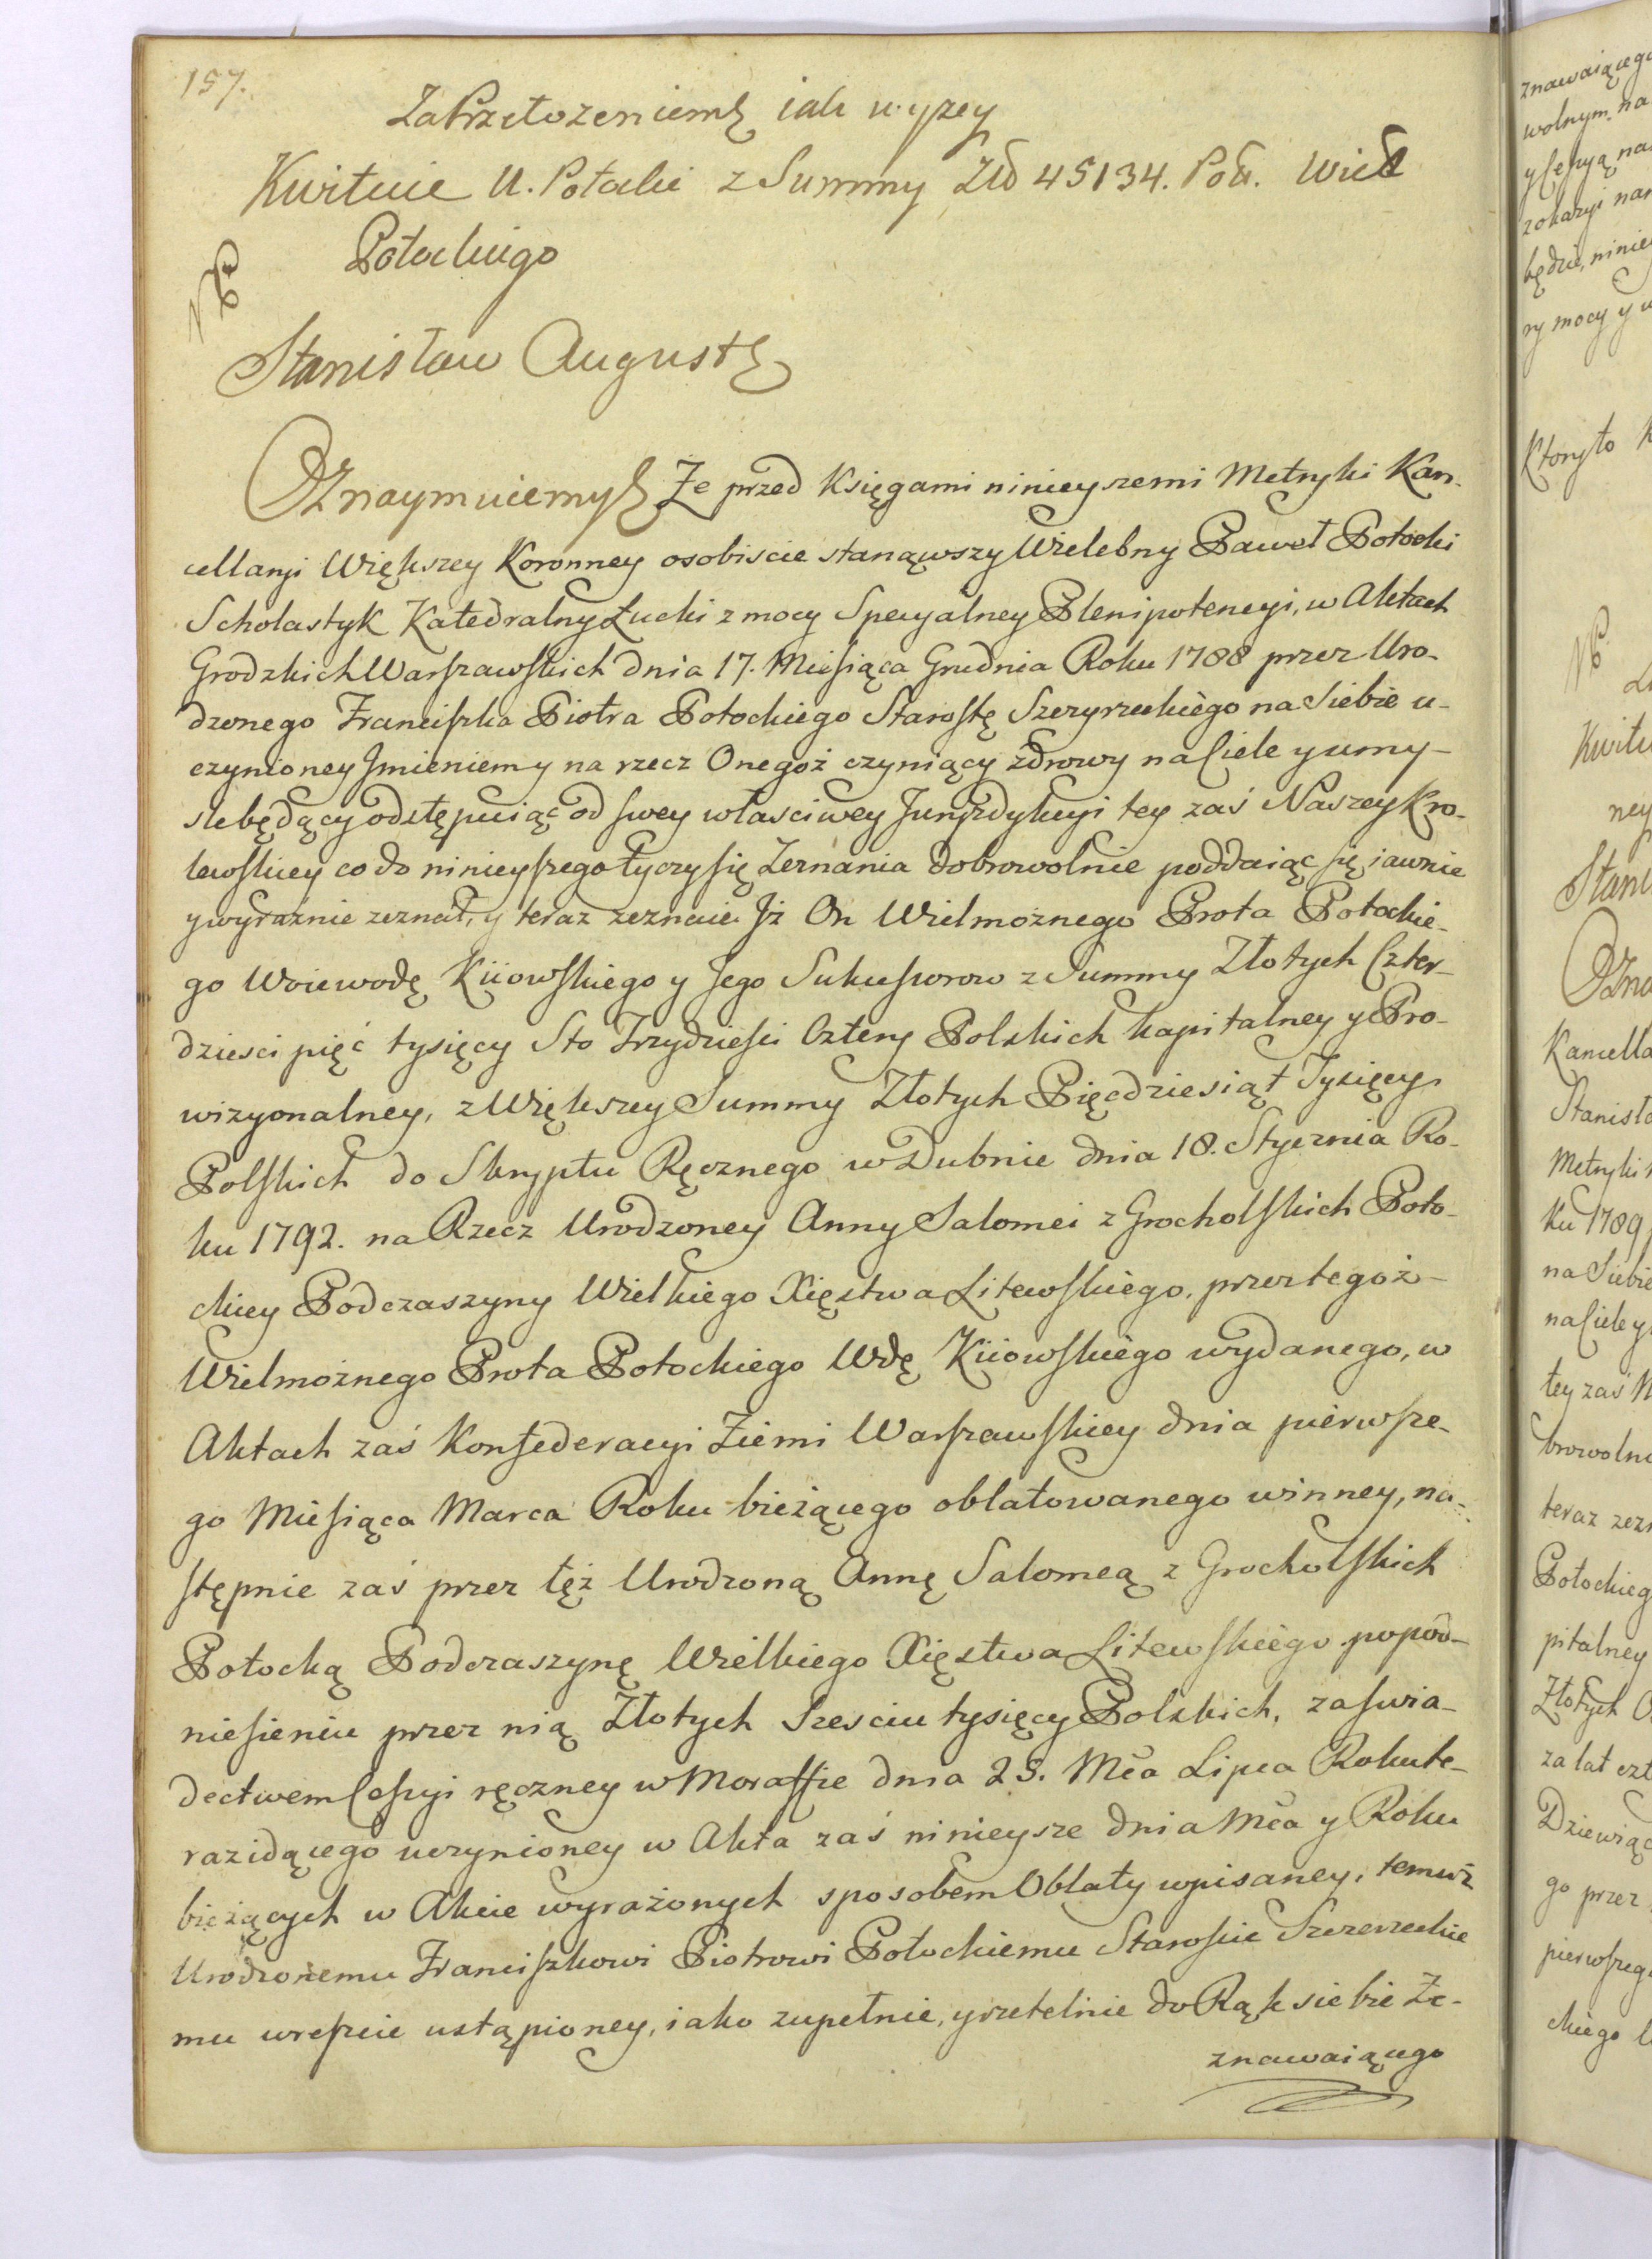 157.
Za Przełożeniem iak wyzey
Kwituie U. Potocki z Summy Złł 45134. Pol. Wiel
Potockiego
Stanisław August
Oznaymuiemy Ze przed Księgami ninieyszemi Metryki Kan-
cellaryi Większey Koronney osobiscie stanąwszy Wielebny Paweł Potocki
Scholastyk Katedralny Łucki z mocy Specyalney Plenipotencyi, w Aktach
Grodzkich Warszawskich dnia 17. Miesiąca Grudnia Roku 1788 przez Uro-
dzonego Franciszka Piotra Potockiego Starostę Szczyrzeckiego na Siebie u-
czynioney Imieniem y na rzecz Onegoż czyniący zdrowy na Ciele y umy-
sle będący odstępuiąc od swey własciwey Juryzdykcyi tey zaś Naszey Kro-
lewskiey co do ninieyszego tyczy się Zeznania dobrowolnie poddaiąc się iawnie
y wyraźnie zeznał, y teraz zeznaie Jż On Wielmożnego Prota Potockie-
go Woiewodę Kiiowskiego y Jego Sukcessorow z Summy Złotych Czter-
dziesci pięć tysięcy Sto Trzydziesci Cztery Polskich kapitalney y Pro-
wizyonalney, z Większey Summy Złotych Pięcdziesiąt Tysięcy
Polskich do Skryptu Ręcznego w Dubnie dnia 18. Stycznia Ro-
ku 1792. na Rzecz Urodzoney Anny Salomei z Grocholskich Poto-
ckiey Podczaszyny Wielkiego Xięstwa Litewskiego, przez tegoż-
Wielmożnego Prota Potockiego Wdę Kiiowskiego wydanego, w
Aktach zaś Konfederacyi Ziemi Warszawskiey dnia pierwsze-
go Miesiąca Marca Roku bieżącego oblatowanego winney, na-
stępnie zaś przez tęż Urodzoną Annę Salomeą z Grocholskich
Potocką Podczaszynę Wielkiego Xięstwa Litewskiego po pod-
niesieniu przez nią Złotych Szesciu tysięcy Polskich, za swia-
dectwem Cessyi ręczney w Moraffie dnia 25. Mca Lipca Roku te-
raz idącego uczynioney w Akta zaś ninieysze dnia Mca y Roku
bieżących w Akcie wyrażonych sposobem Oblaty wpisaney, temuż
Urodzonemu Franciszkowi Piotrowi Potockiemu Staroscie Szczerzeckie
mu wreszcie ustąpioney, iako zupełnie, y rzetelnie do Rąk siebie Ze-
znawaiącego
znawaiącego
wolnym, na
y Cessyą na
z okazyi na
będzie, ninie
ry mocy y
Ktory to
Kwitu
ney
Stani
Ozna
Kancella
Stanisła
Metryki
ku 1789
na Siebie
na Ciele y
tey zaś N
browolni
teraz zezn
Potockieg
pitalney
Złotych
za lat czt
Dziewiąc
go przez
pierwszeg
ckiego